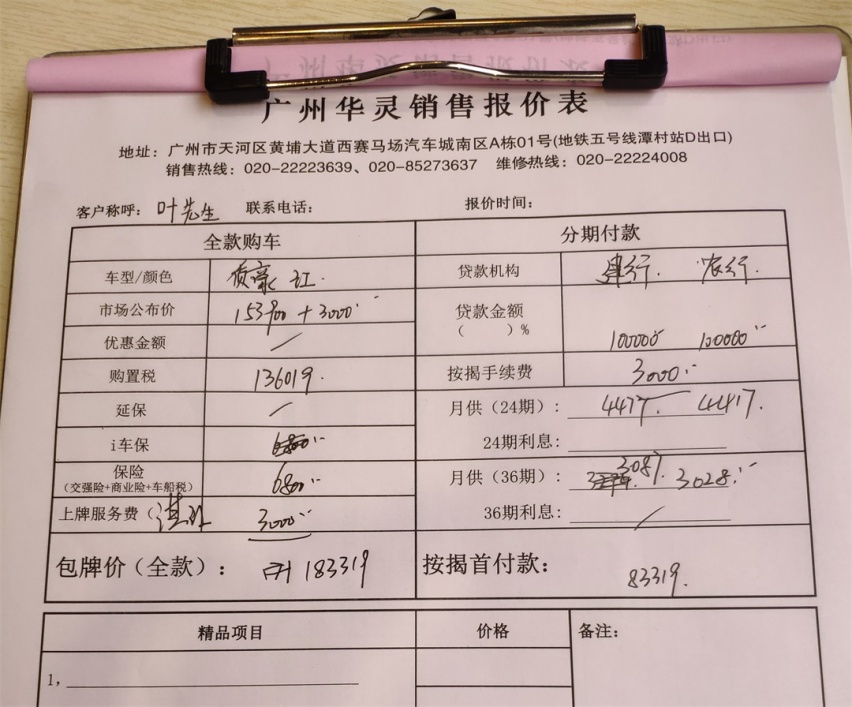 广州华灵销售报价表
地址：广州市天河区黄埔大道西赛马场汽车城南区A栋01号(地铁五号线潭村站D出口)
销售热线：020-22223639、020-85273637 维修热线：020-22224008
客户称呼：叶先生 联系电话： 报价时间：
全款购车 分期付款
车型/颜色 红 贷款机构 农行
市场公布价 153900 + 3000
贷款金额
（ ）% 100000 100000
优惠金额 /
购置税 136019 按揭手续费 3000
延保 / 月供（24期）： 4477 4417
i车保 24期利息：
保险
（交强险+商业险+车船税） 6800 月供（36期）： 3087 3028
上牌服务费（ 3000 36期利息： /
包牌价（全款）： 计 183319 按揭首付款： 83319
精品项目 价格 备注：
1，